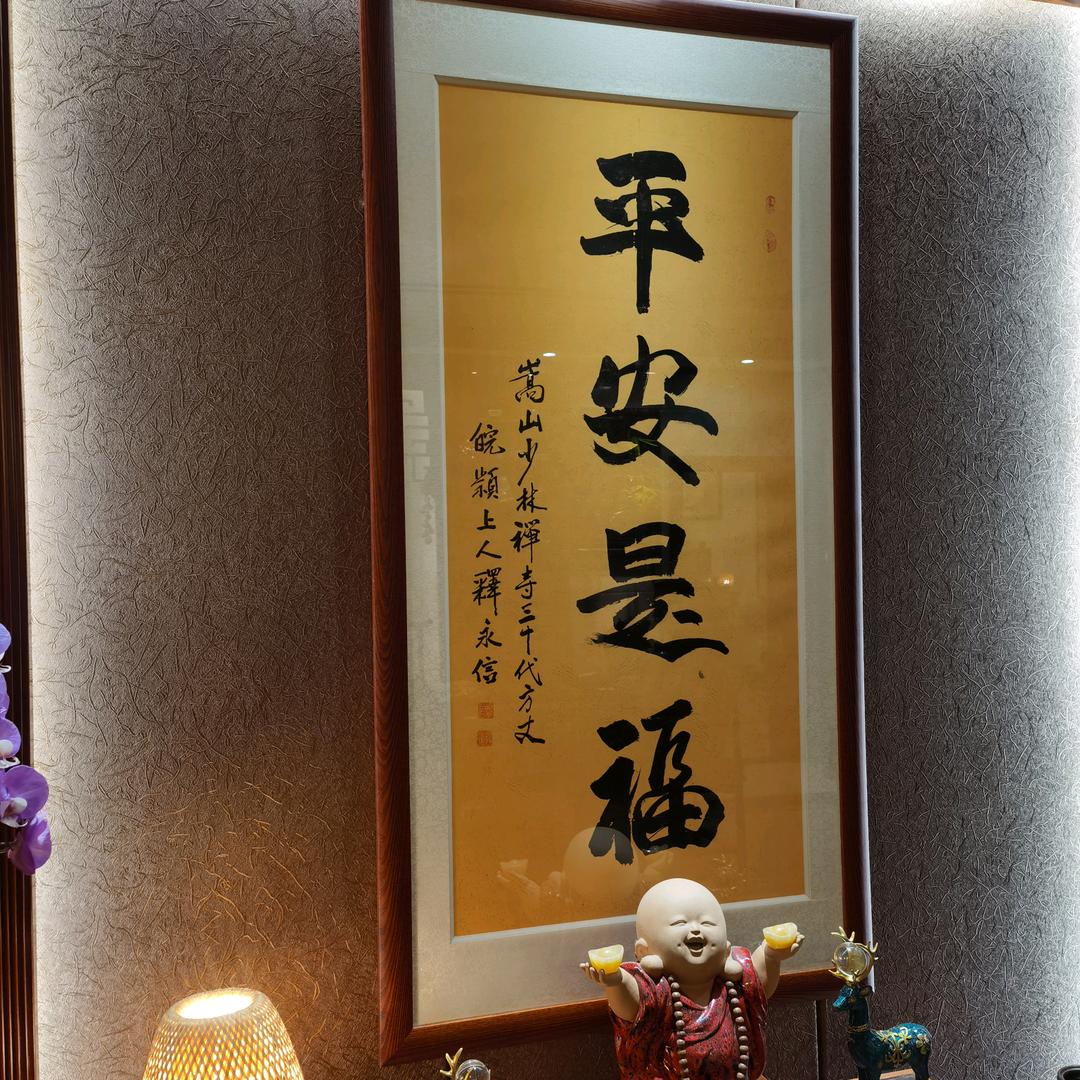 平安是福
嵩山少林禪寺三十代方丈
皖潁上人釋永信